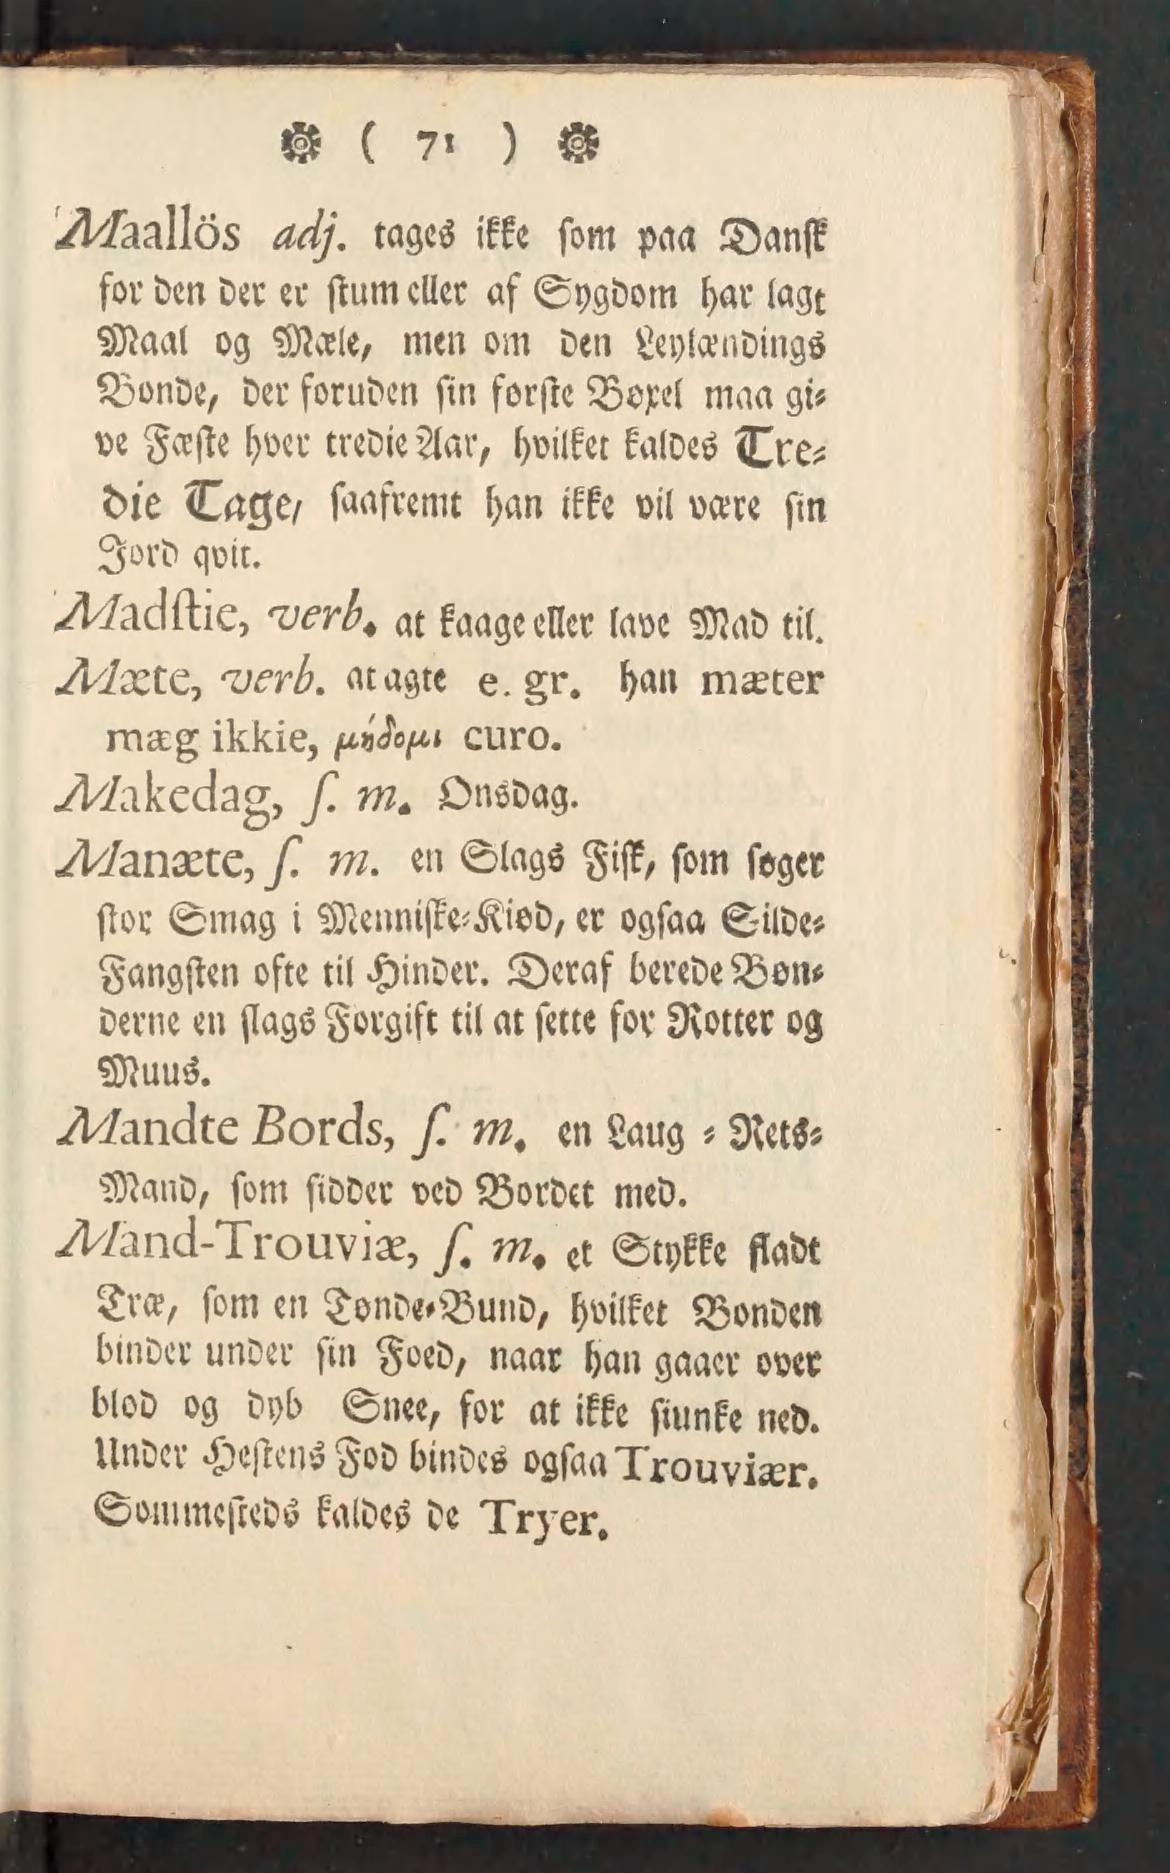 ( 71 )
Maallös adj. tages ikke som paa Dansk
for den der er stum eller af Sygdom har lagt
Maal og Mæle, men om den Leylændings
Bonde, der foruden sin første Bøxel maa gi⸗
ve Fæste hver tredie Aar, hvilket kaldes Tre⸗
die Tage, saafremt han ikke vil være sin
Jord qvit.
Madstie, verb. at kaage eller lave Mad til.
Mæte, verb. at agte e. gr. han mæter
mæg ikkie, μήδομι curo.
Makedag, ſ. m. Onsdag.
Manæte, ſ. m. en Slags Fisk, som søger
stor Smag i Menniske⸗Kiød, er ogsaa Silde⸗
Fangsten ofte til Hinder. Deraf berede Bøn⸗
derne en slags Forgift til at sette for Rotter og
Muus.
Mandte Bords, ſ. m. en Laug ⸗ Rets⸗
Mand, som sidder ved Bordet med.
Mand-Trouviæ, ſ. m. et Stykke fladt
Træ, som en Tønde⸗Bund, hvilket Bonden
binder under sin Foed, naar han gaaer over
blod og dyb Snee, for at ikke siunke ned.
Under Hestens Fod bindes ogsaa Trouviær.
Sommesteds kaldes de Tryer.